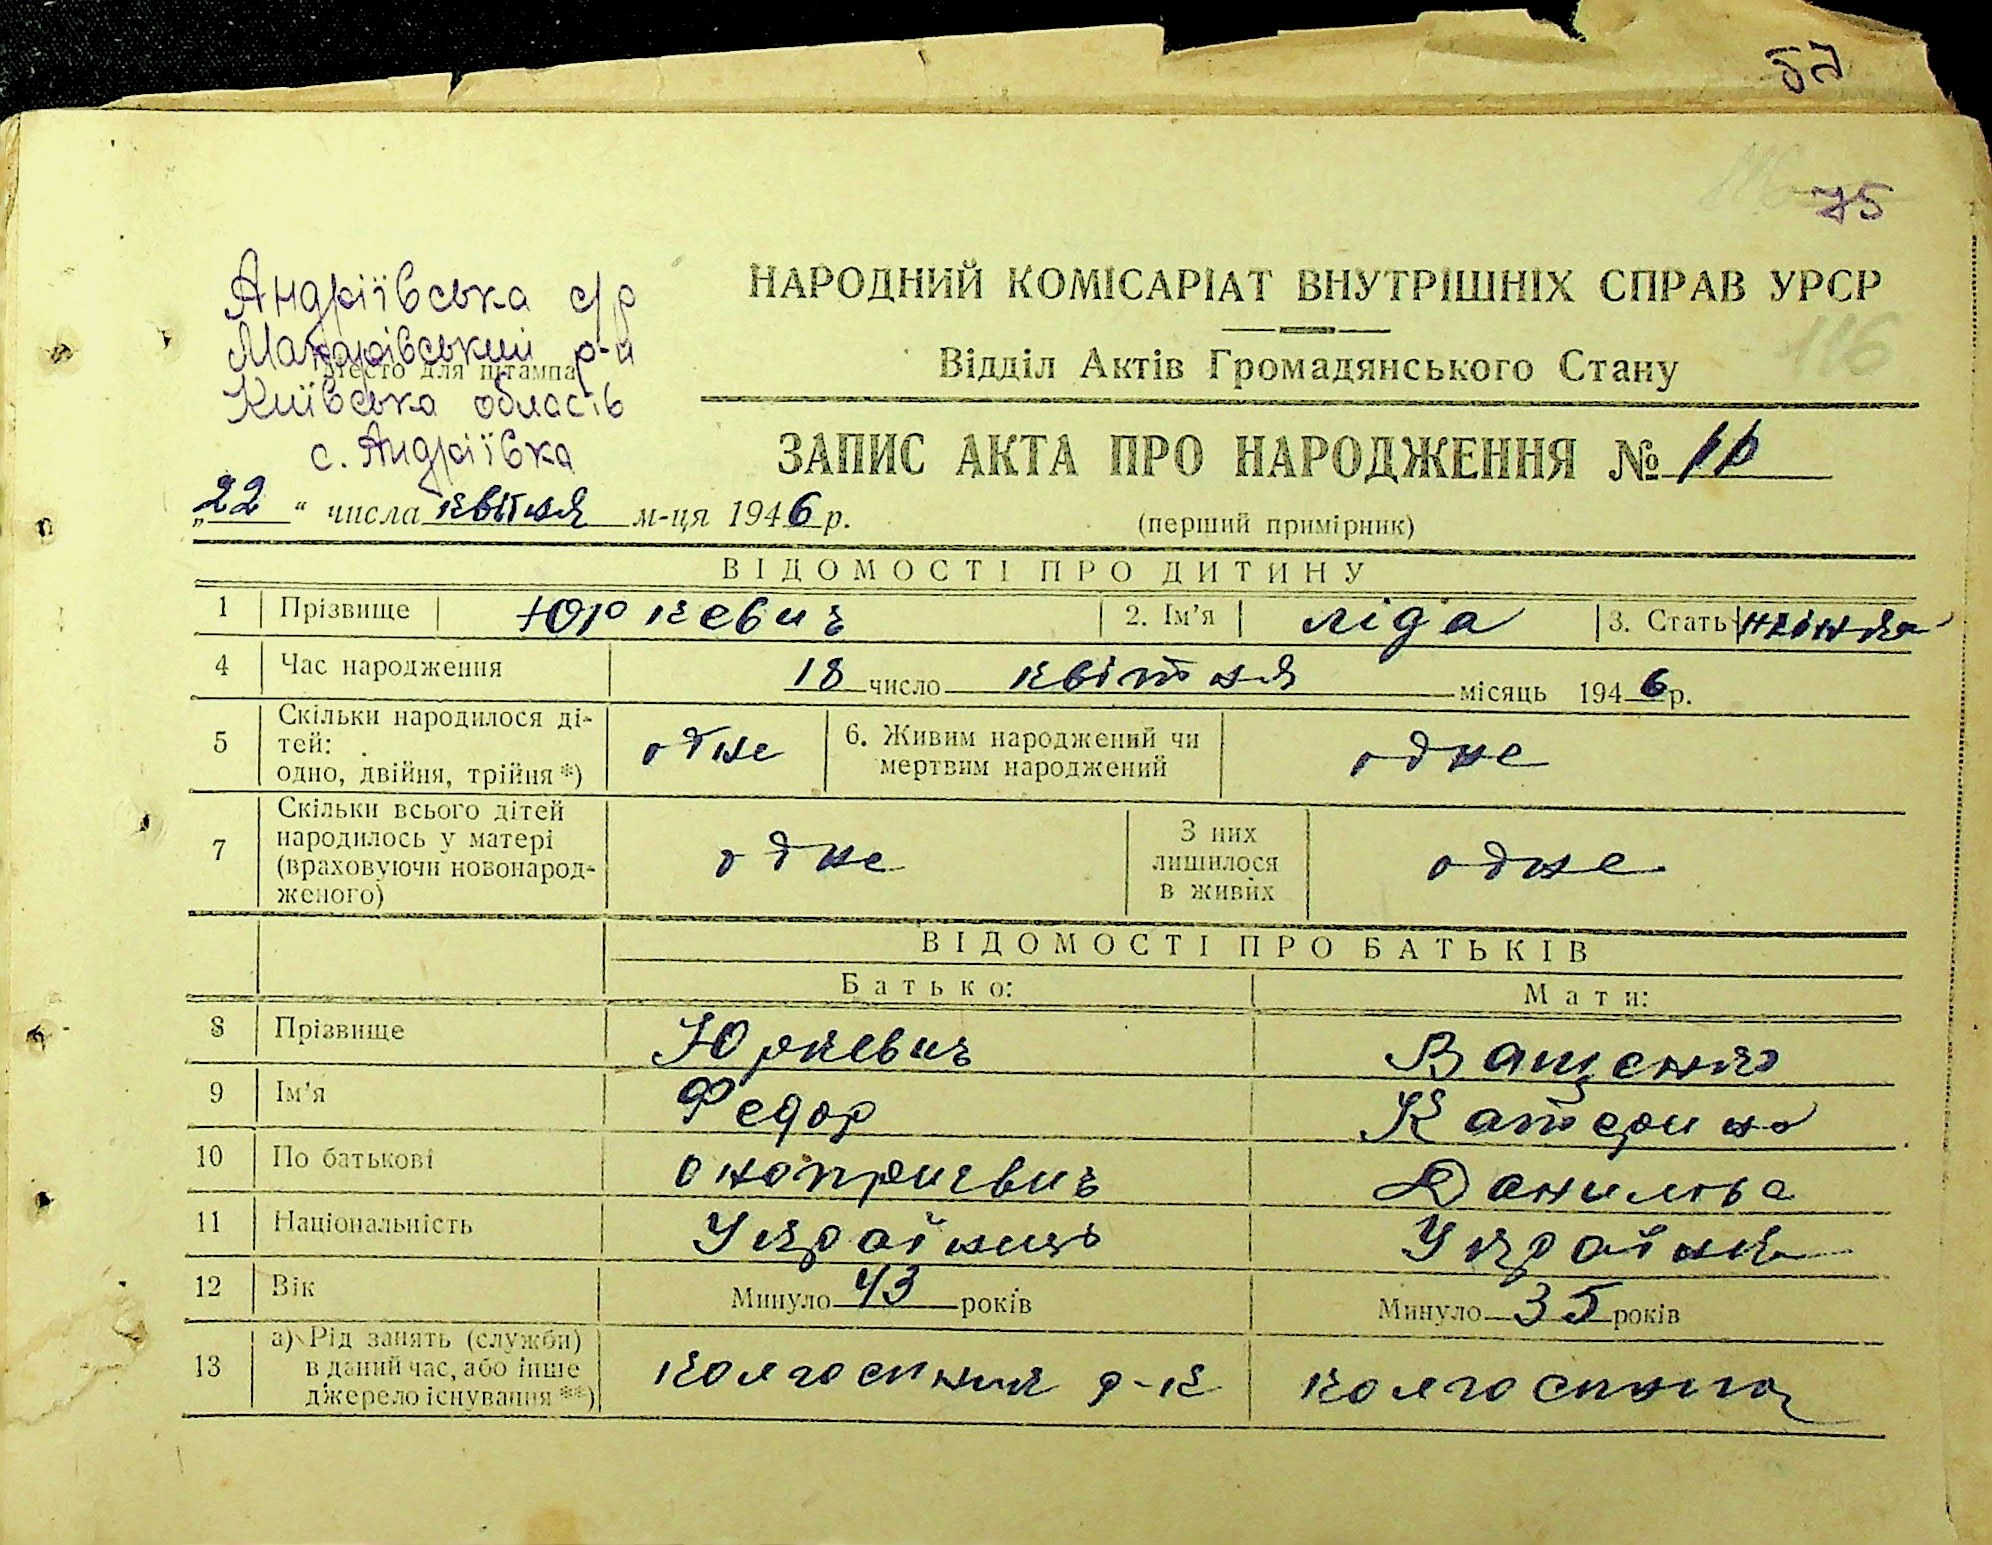 75
116
Андріївська с/р
Макарівський р-н
Місто для штампа
Київська область
с. Андріївка
НАРОДНИЙ КОМІСАРІАТ ВНУТРІШНІХ СПРАВ УРСР
Відділ Актів Громадянського Стану
ЗАПИС АКТА ПРО НАРОДЖЕННЯ №
„22“ числа квітня м-ця 1946 р.
(перший примірник)
ВІДОМОСТІ ПРО ДИТИНУ
1 Прізвище Юркевич 2. Ім'я ліда 3. Стать жінка
4 Час народження 18 число квітня місяць 1946 р.
5 Скільки народилося ді-
тей:
одно, двійня, трійня *) одне
6. Живим народжений чи
мертвим народжений одне
7 Скільки всього дітей
народилось у матері
(враховуючи новонарод-
женого) одне
З них
лишилося
в живих одне
ВІДОМОСТІ ПРО БАТЬКІВ
Батько: Мати:
8 Прізвище Юркевич Ващенко
9 Ім'я Федор Катерина
10 По батькові оноприевич Данилова
11 Національність Українець Українка
12 Вік Минуло 43 років Минуло 35 років
13 а) Рід занять (служби)
в даний час, або інше
джерело існування **) колгоспник р-к колгоспниця